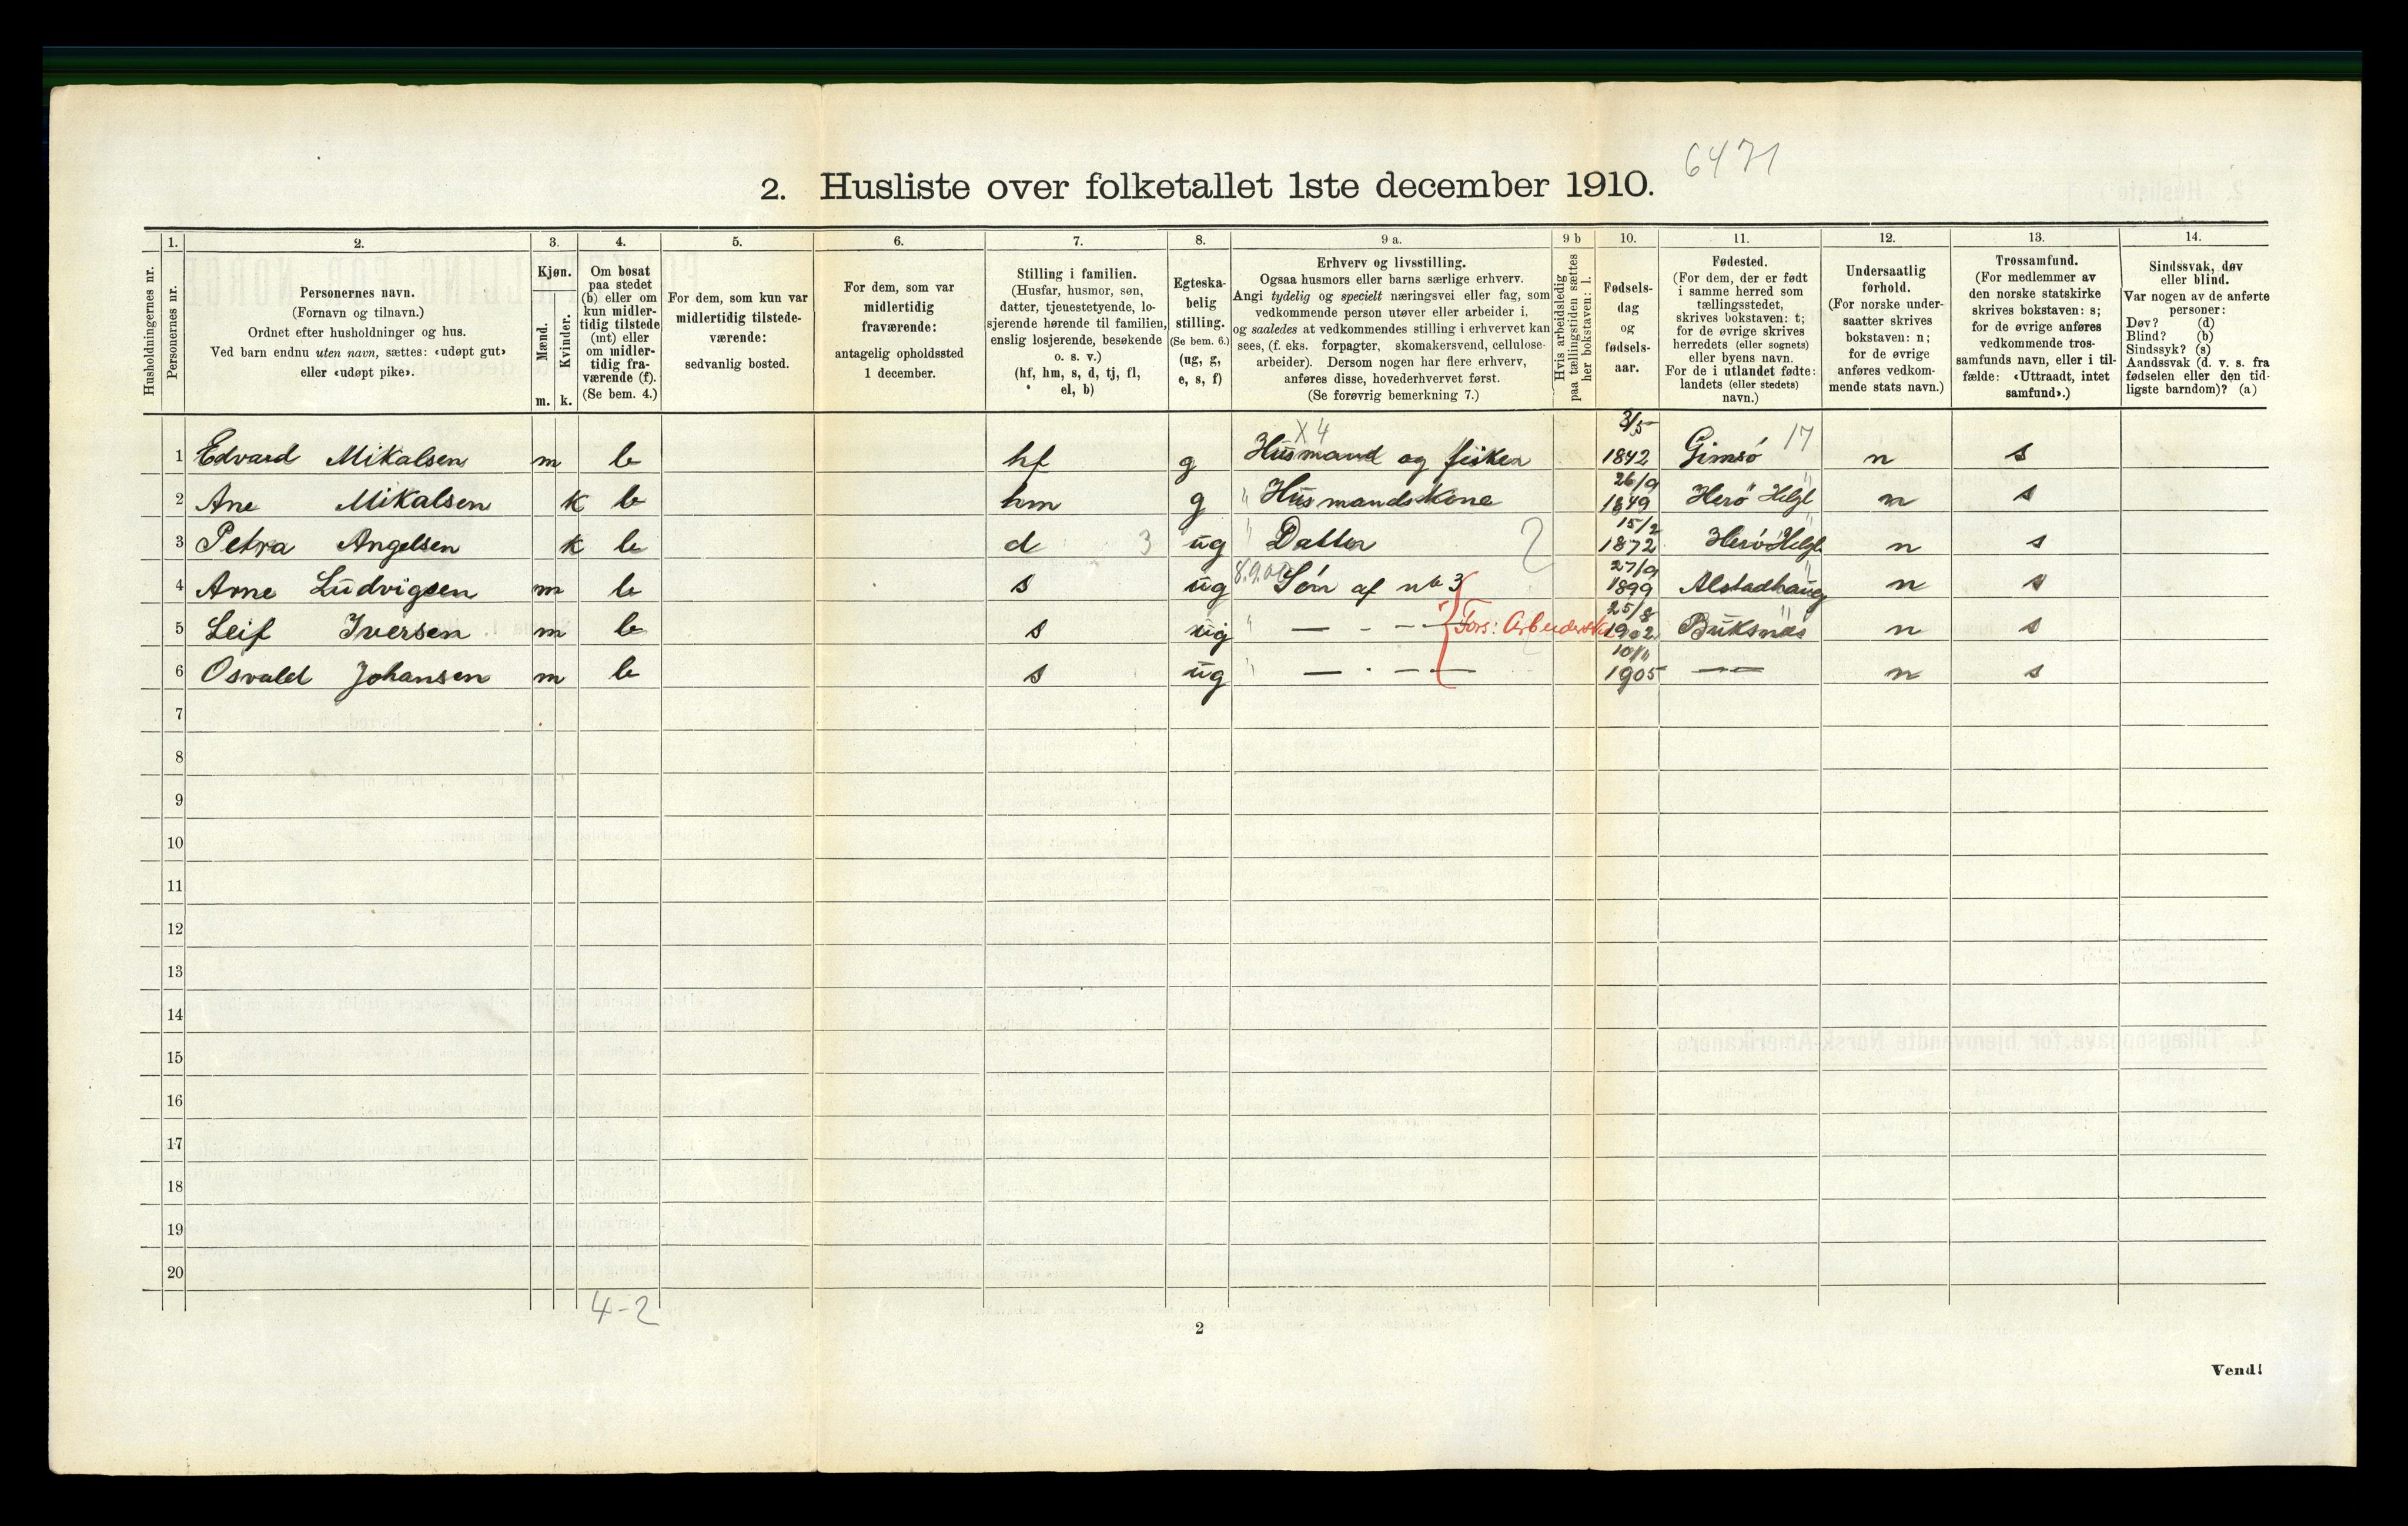 6471
2. Husliste over folketallet 1ste december 1910.
Husholdningernes nr.
1.
Personernes nr.
2.
Personernes navn.
(Fornavn og tilnavn.)
Ordnet efter husholdninger og hus.
Ved barn endnu uten navn, sættes: «udøpt gut»
eller «udøpt pike».
3.
Kjøn.
Mænd.
Kvinder.
m. k.
4.
Om bosat
paa stedet
(b) eller om
kun midler-
tidig tilstede
(mt) eller
om midler-
tidig fra-
værende (f).
(Se bem. 4.)
5.
For dem, som kun var
midlertidig tilstede-
værende:
sedvanlig bosted.
6.
For dem, som var
midlertidig
fraværende:
antagelig opholdssted
1 december.
7.
Stilling i familien.
(Husfar, husmor, søn,
datter, tjenestetyende, lo-
sjerende hørende til familien,
enslig losjerende, besøkende
o. s. v.)
(hf, hm, s, d, tj, fl,
el, b)
8.
Egteska-
belig
stilling.
(Se bem. 6.)
(ug, g,
e, s, f)
9 a.
Erhverv og livsstilling.
Ogsaa husmors eller barns særlige erhverv.
Angi tydelig og specielt næringsvei eller fag, som
vedkommende person utøver eller arbeider i,
og saaledes at vedkommendes stilling i erhvervet kan
sees, (f. eks. forpagter, skomakersvend, cellulose-
arbeider). Dersom nogen har flere erhverv,
anføres disse, hovederhvervet først.
(Se forøvrig bemerkning 7.)
9 b
Hvis arbeidsledig
paa tællingstiden sættes
her bokstaven: l.
10.
Fødsels-
dag
og
fødsels-
aar.
11.
Fødested.
(For dem, der er født
i samme herred som
tællingsstedet,
skrives bokstaven: t;
for de øvrige skrives
herredets (eller sognets)
eller byens navn.
For de i utlandet fødte:
landets (eller stedets)
navn.)
12.
Undersaatlig
forhold.
(For norske under-
saatter skrives
bokstaven: n;
for de øvrige
anføres vedkom-
mende stats navn.)
13.
Trossamfund.
(For medlemmer av
den norske statskirke
skrives bokstaven: s;
for de øvrige anføres
vedkommende tros-
samfunds navn, eller i til-
fælde: «Uttraadt, intet
samfund».)
14.
Sindssvak, døv
eller blind.
Var nogen av de anførte
personer:
Døv? (d)
Blind? (b)
Sindssyk? (s)
Aandssvak (d. v. s. fra
fødselen eller den tid-
ligste barndom)? (a)
X 4 3/5 17
1 Edvard Mikalsen m b hf g Husmand og fisker 1842 Gimsø n s
26/9
2 Ane Mikalsen k b hm g " Husmandskone 1849 Herø Helgl n s
15/2
3 Petra Angelsen k b d 3 ug " Datter 2 1872 Herø Helgl n s
27/9
4 Arne Ludvigsen m b s ug 8.9.00 Søn af no 3 1899 Alstadhaug n s
25/8
5 Leif Iversen m b s ug " — - — Fors: 1902 Buksnæs n s
6 Osvald Johansen m b s ug " — - — 1905 — n s
7
8
9
10
11
12
13
14
15
16
17
18
19
20
4-2
2
Vend!